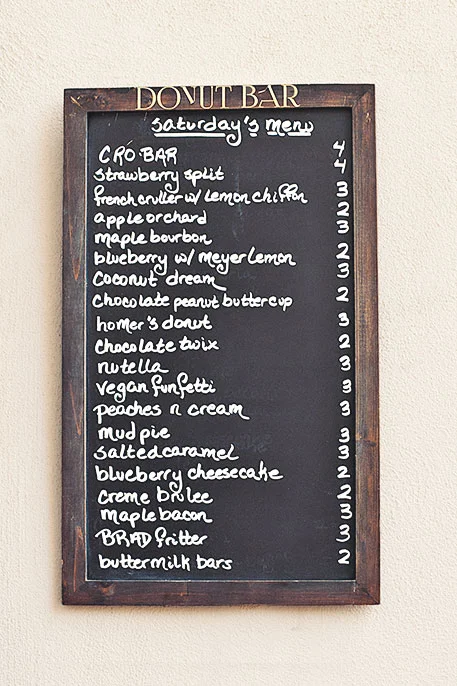 DONUT BAR
saturday's menu
CRO BAR 4
strawberry split 4
french cruller w/ lemon chiffon 3
apple orchard 2
maple bourbon 3
blueberry w/ meyer lemon 2
coconut dream 3
chocolate peanut butter cup 2
homer's donut 3
chocolate twix 2
nutella 3
vegan funfetti 3
peaches n cream 3
mud pie 3
salted caramel 3
blueberry cheesecake 2
creme brulee 2
maple bacon 3
BRAD fritter 3
buttermilk bars 2